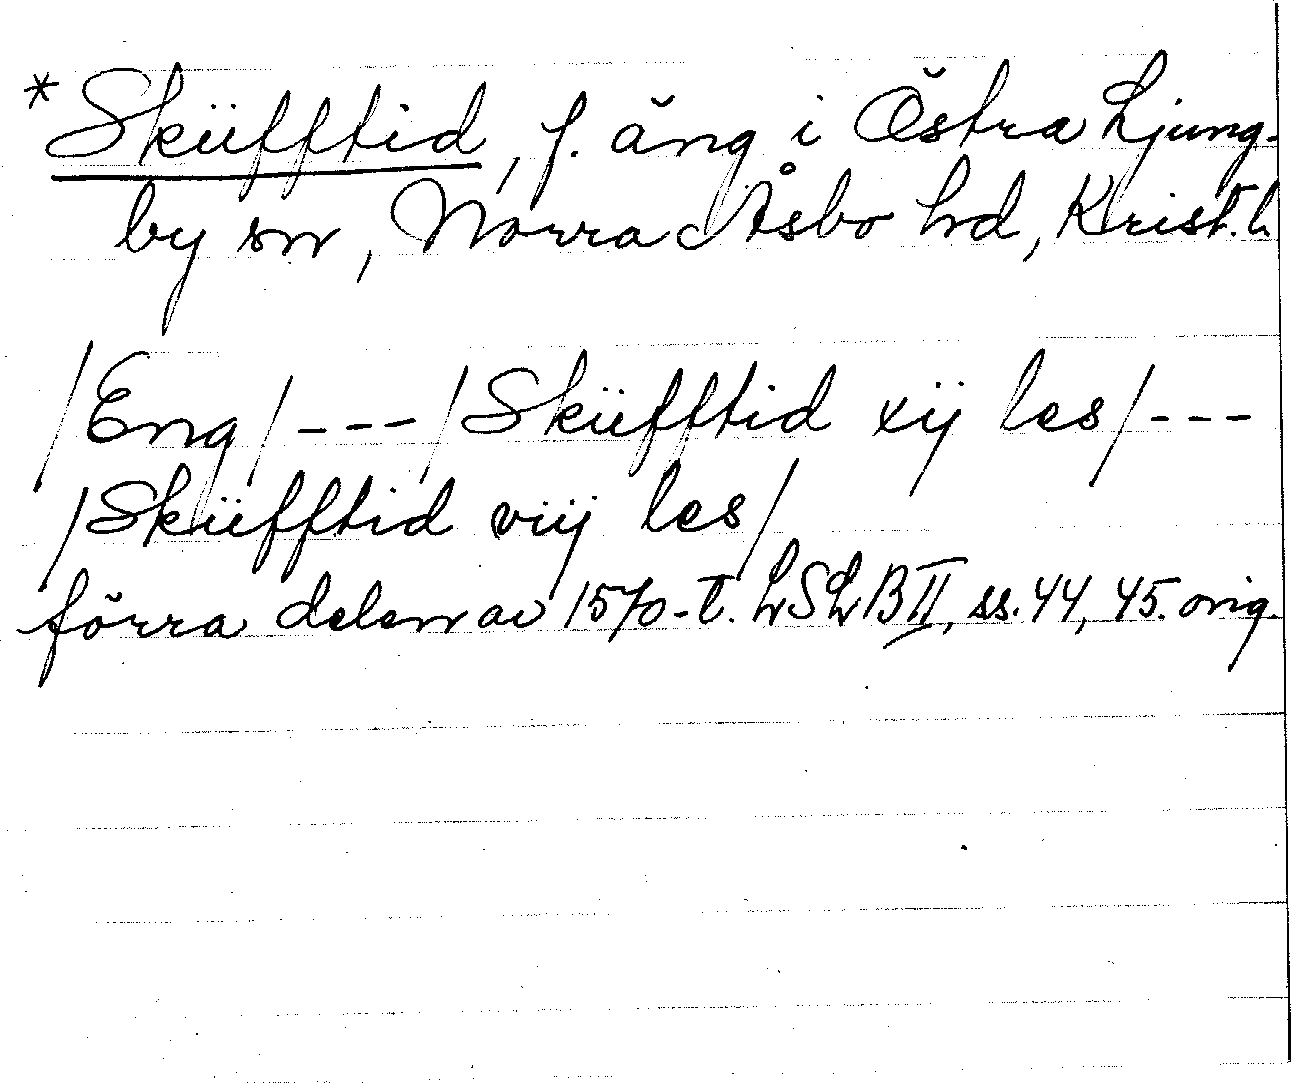 * Sküfftid, f. äng i Östra Ljung-
by sn, Norra Åsbo hd, Krist. l.
/Eng/ --- /Sküfftid xij les/ ---
/Sküfftid viij les/
förra delen av 1570-t. LSLB II, ss. 44, 45. orig.